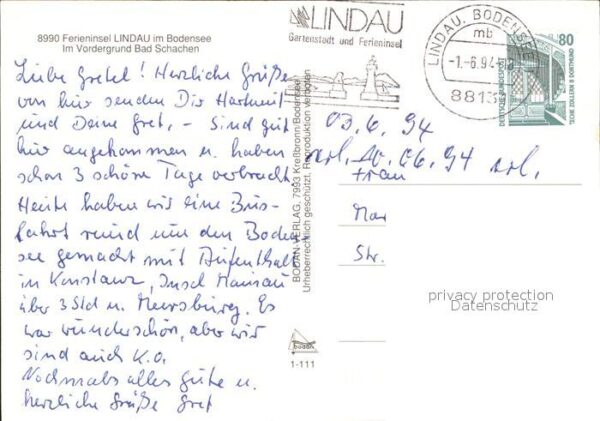 8990 Ferieninsel LINDAU im Bodensee
Im Vordergrund Bad Schachen
Liebe Gretel! Herzliche Grüße
von hier senden Dir Hartmut
und Deine Gret, - Sind gut
hier angekommen u. haben
schon 3 schöne Tage verbracht
Heute haben wir eine Bus-
fahrt rund um den Boden
see gemacht mit Aufenthalt
in Konstanz, Insel Mainau
über 3 Std u. Meersburg. Es
war wunderschön, aber wir
sind auch K.O.
Nochmals alles Gute u.
herzliche Grüße Gret
BODAN-VERLAG, 7993 Kreßbronn/Bodensee
Urheberrechtlich geschützt. Reproduktion verboten
bodan
1-111
LINDAU
Gartenstadt und Ferieninsel
LINDAU, BODENSEE
mb
-1.-6.94-
8813
80
DEUTSCHE BUNDESPOST
ZECHE ZOLLERN II DORTMUND
03.6.94
erl. 10.06.94 erl.
Frau
Mar
Str.
privacy protection
Datenschutz